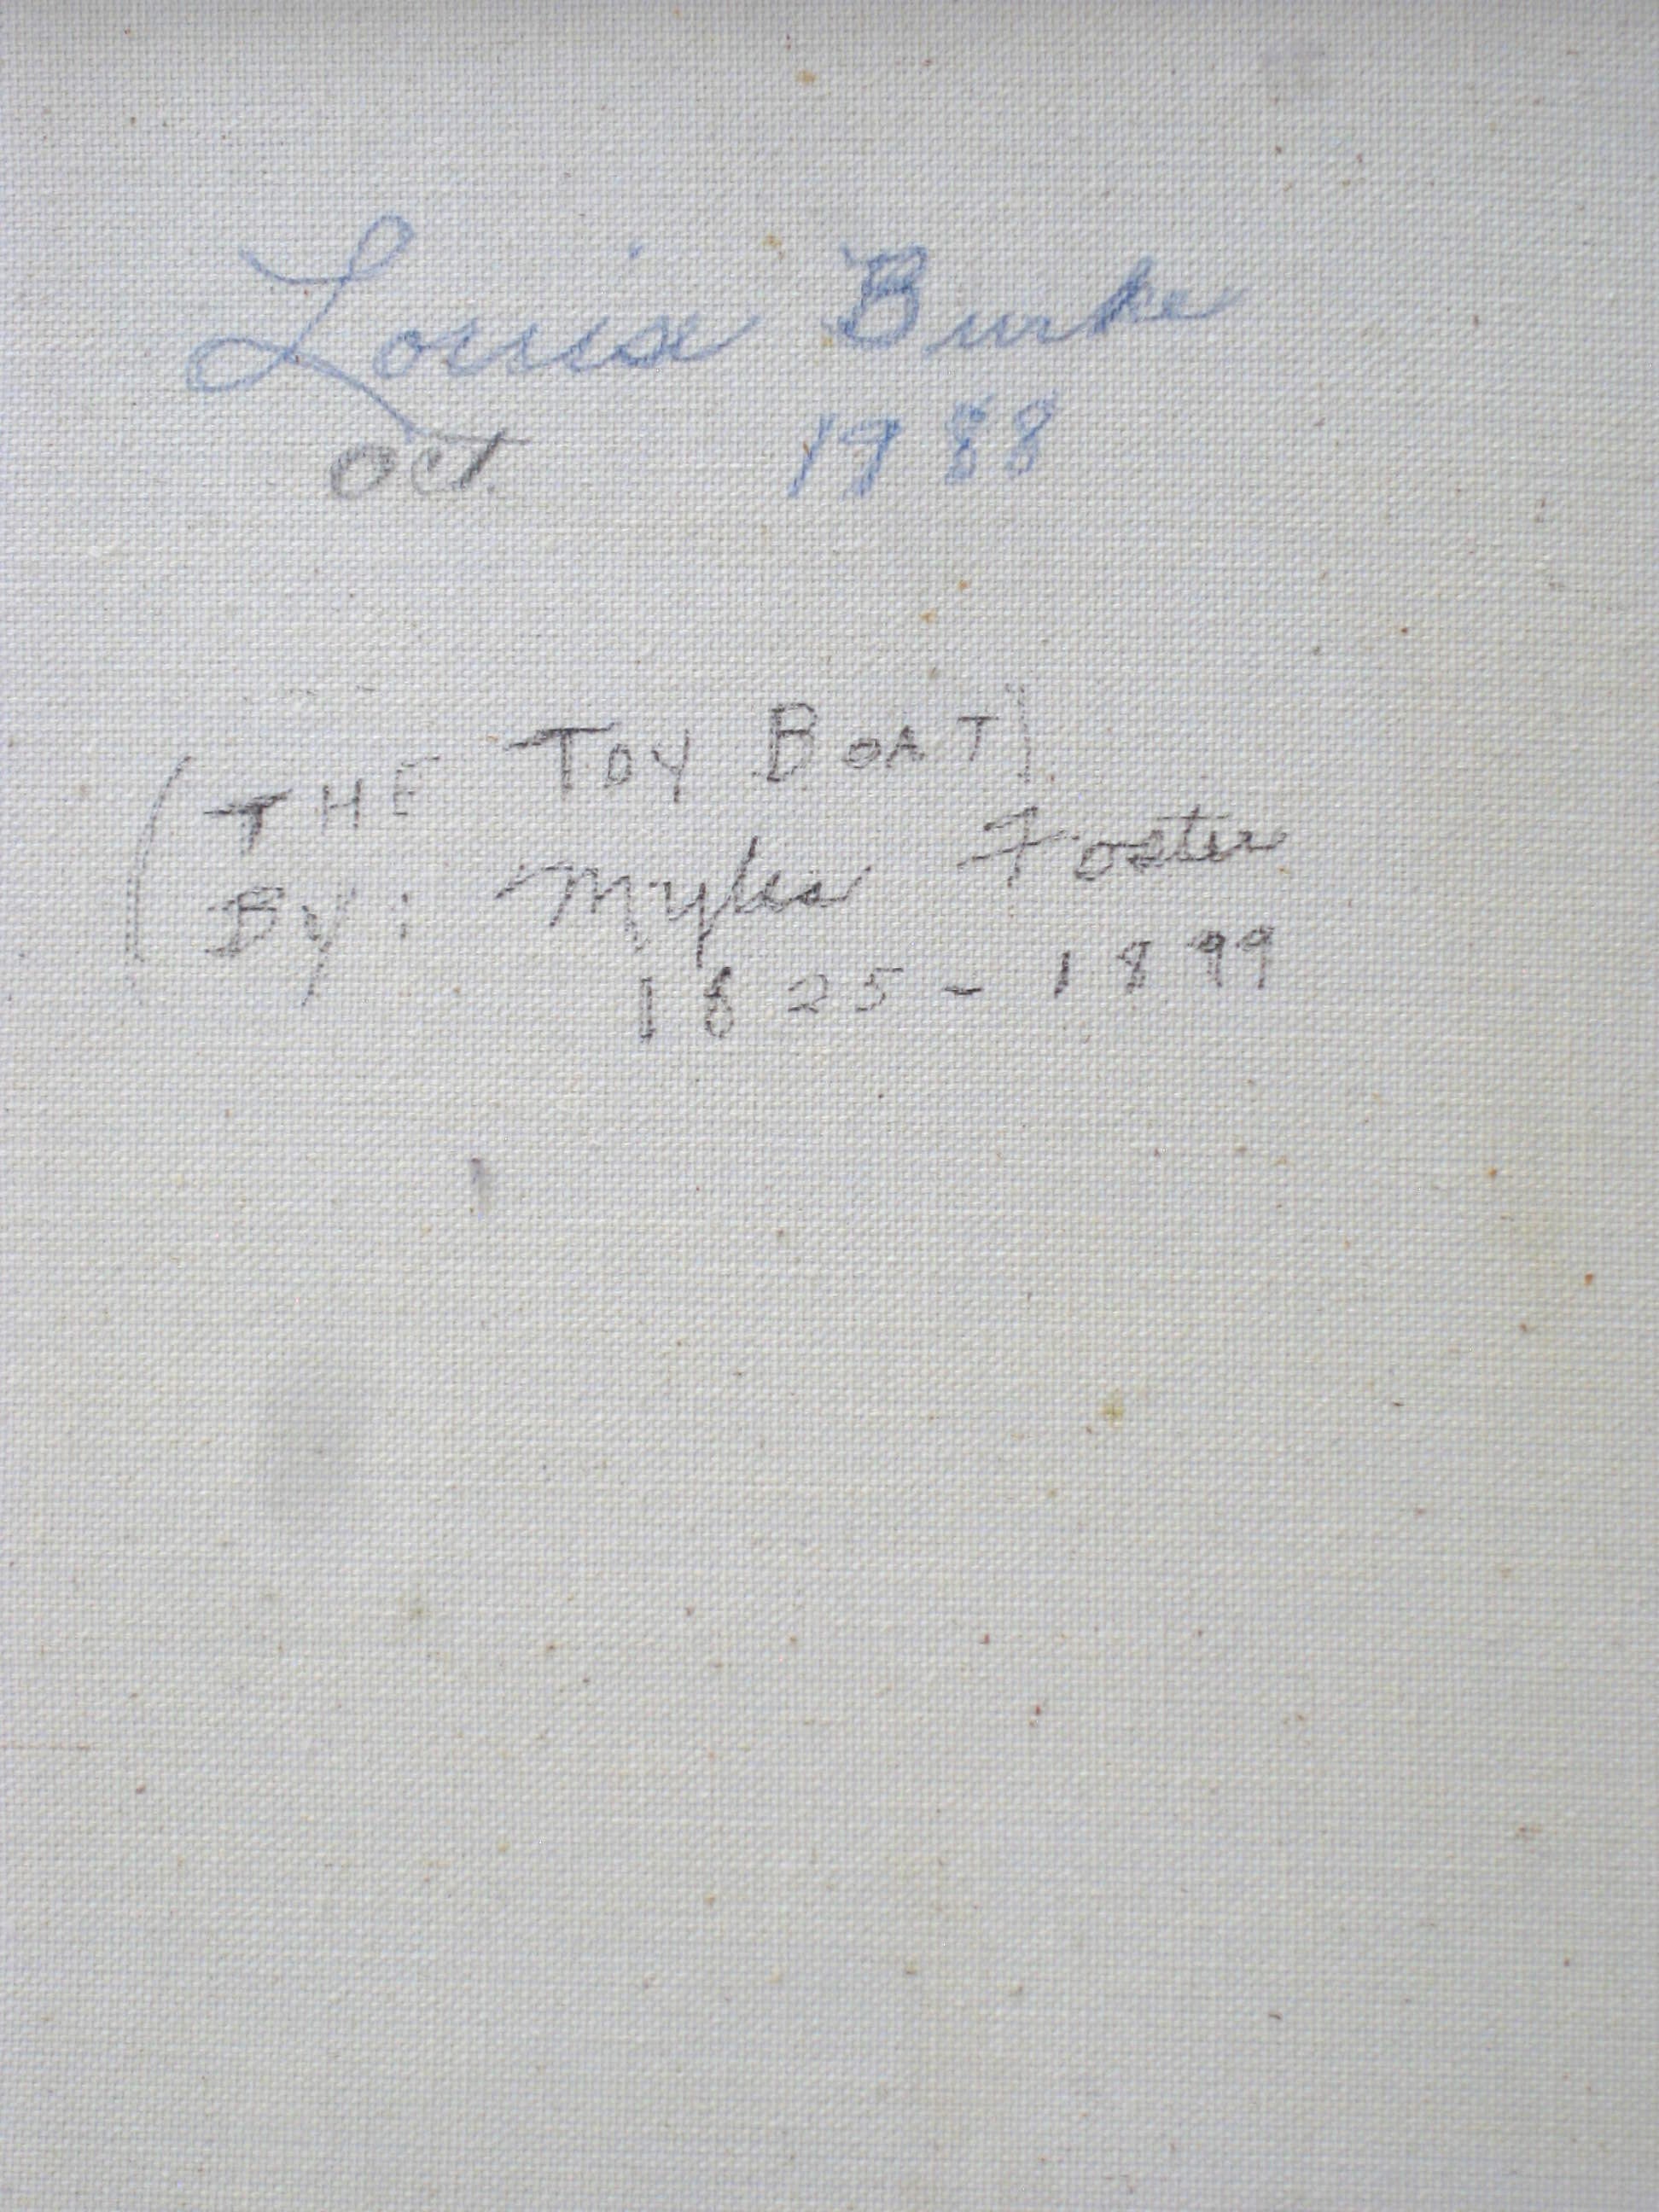 Louise Burke
Oct. 1988
(THE TOY BOAT)
By: Myles Foster
1825-1899